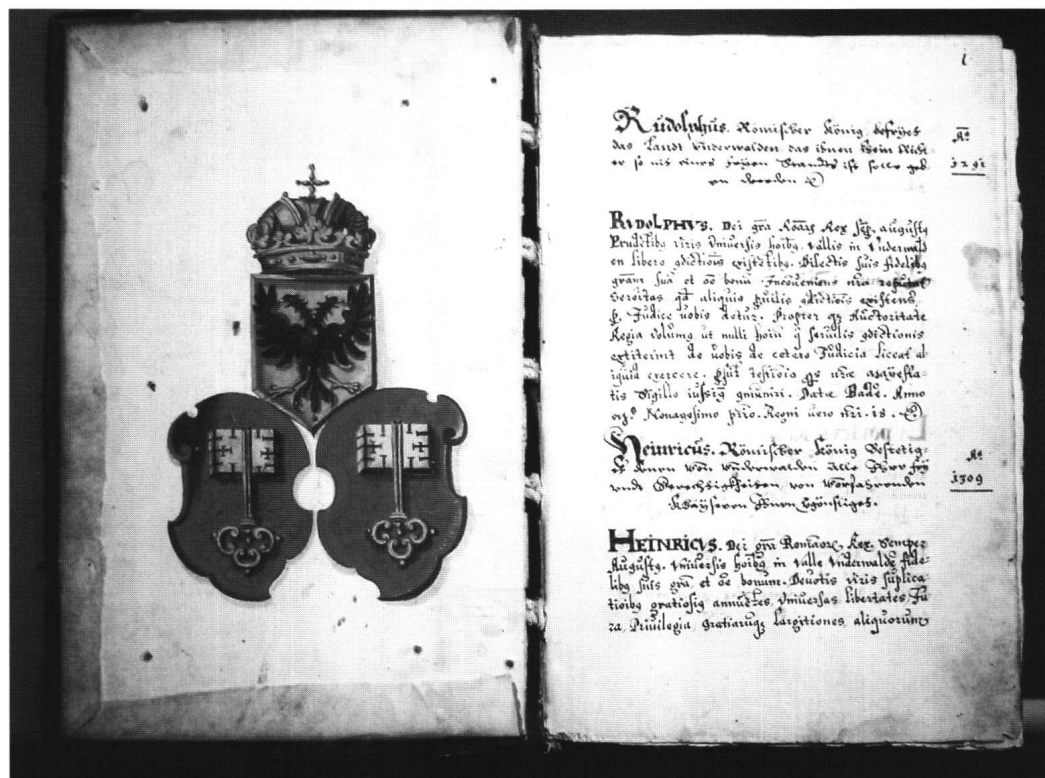 1
Rudolphus. Römischer König befryet
das Landt Underwalden das ihnen khein Richt
er so nit eines fryen Standts ist solle geb
en werden
A°
1291
RVDOLPHVS. Dei grā Roāꝝ Rex sēp. augustꝰ
Prudētibꝰ viris Vniversis hoībꝰ. vallis in Vnderwald
en libero ꝯditiōis existētibꝰ. Dilectis suis fidelibꝰ
grām suā et oē bonū. Incōueniens nrā reputat
Serēitas qđ aliquis ẜuilis ꝯditiōis existens
ꝓ. Judice uobis detur. Propter qꝫ Auctoritate
Regia volumꝰ ut nulli hoīū q̄ seruilis ꝯditionis
extiterint de uobis de cetero Judicia liceat al
iquid exercere. nrē Mayesta-
tis Sigilio gmuniri. Datæ Badē. Anno
Nonagesimo prīo. Regni uero nrī. 18.
Heinricus. Römischer König Bestetig-
et denen von Underwalden Alle Ihre fry
undt Gerechtigkheiten von Vorfahrenden
Khayseren Ihnen
A°
1309
HEINRICVS. Dei grā Romāorꝫ Rex. Semper
Augustꝰ. Vniuersis hoībꝰ in Valle Vnderwaldē fide-
libꝰ suis grā. et oē bonum. Deuotis viris suplica
tioībꝰ gratiosiꝰ annuētes, Vniuersas libertates, Ju
ra, Priuilegia, gratiarumqꝫ largitiones, aliquorum